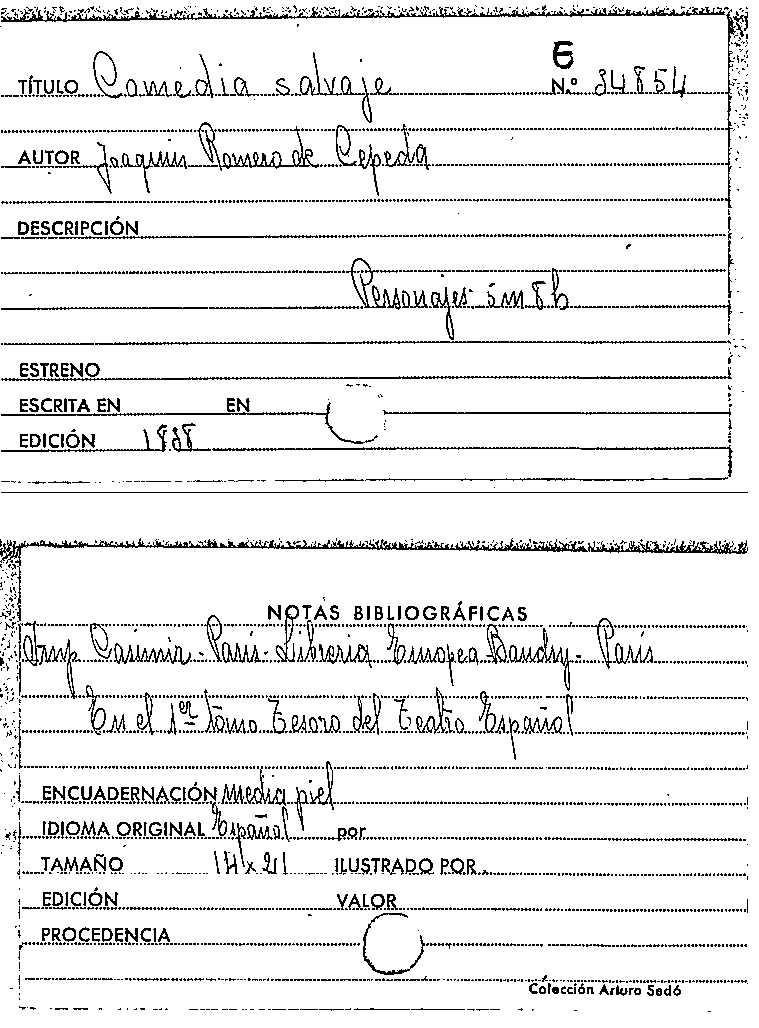 6
TÍTULO Comedia salvaje N.º 34854
AUTOR Joaquin Romero de Cepeda
DESCRIPCIÓN
Personajes: 5m 8h
ESTRENO
ESCRITA EN EN
EDICIÓN 1838
NOTAS BIBLIOGRÁFICAS
Imp Casimir - Paris - Libreria Europea Baudry - Paris
En el 1er tomo Tesoro del Teatro Español
ENCUADERNACIÓN Media piel
IDIOMA ORIGINAL Español por
TAMAÑO 14 x 21 ILUSTRADO POR
EDICIÓN VALOR
PROCEDENCIA
Colección Arturo Sedó